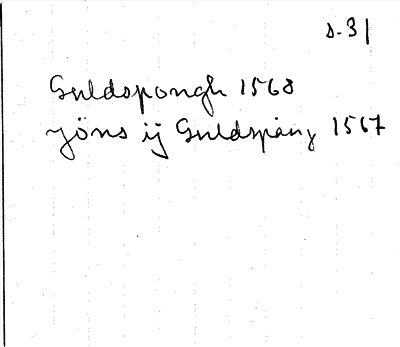 s. 31
Guldspongh 1568
Jöns ij Guldspång 1567